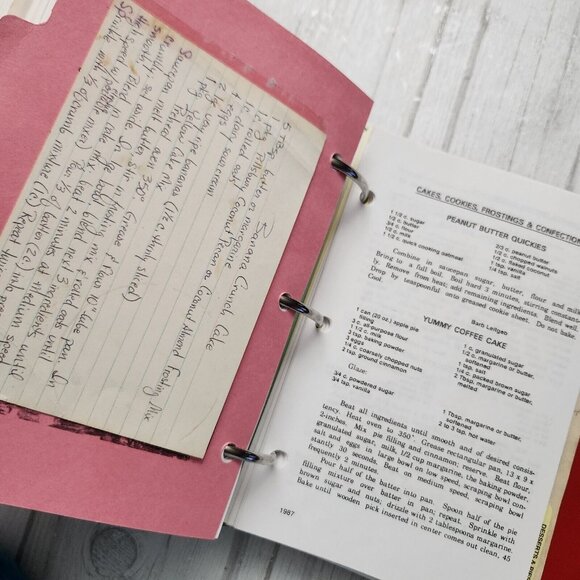 Banana Crunch Cake
5 Tbsp butter or margarine
1 pkg Pillsbury Coconut Pecan or Coconut Almond Frosting Mix
1 c. rolled oats
1 c. dairy sour cream
4 eggs
2 lg. very ripe bananas (1 1/2 c. thinly sliced)
1 pkg Yellow Cake Mix
Preheat oven 350° Grease & flour 10" tube pan. In
saucepan melt butter, stir in frosting mix & rolled oats until
crumbly, set aside. In
smooth. Blend in cake mix. Beat 2 minutes at medium speed
CAKES, COOKIES, FROSTINGS & CONFECTION
PEANUT BUTTER QUICKIES
1 1/2 c. sugar
1/2 c. butter
3/4 c. flour
1/2 c. milk
1 1/2 c. quick cooking oatmeal
2/3 c. peanut butter
1/2 c. chopped walnuts
1/2 c. flaked coconut
1 tsp. vanilla
1/4 tsp. salt
Combine in saucepan sugar, butter, flour and milk.
Bring to a full boil. Boil hard 3 minutes, stirring constant-
ly. Remove from heat; add remaining ingredients. Blend well.
Drop by teaspoonful onto greased cookie sheet. Do not bake.
Cool.
Barb Leifgeb
YUMMY COFFEE CAKE
1 can (20 oz.) apple pie
filling
3 c. all-purpose flour
1 1/2 c. milk
3 tsp. baking powder
3 eggs
1/4 c. coarsely chopped nuts
2 tsp. ground cinnamon
1 c. granulated sugar
1/2 c. margarine or butter,
softened
1 tsp. salt
1/4 c. packed brown sugar
2 Tbsp. margarine or butter,
melted
Glaze:
3/4 c. powdered sugar
3/4 tsp. vanilla
1 Tbsp. margarine or butter,
softened
2 to 3 tsp. hot water
Beat all ingredients until smooth and of desired consis-
tency. Heat oven to 350°. Grease rectangular pan, 13 x 9 x
2-inches. Mix pie filling and cinnamon; reserve. Beat flour,
granulated sugar, milk, 1/2 cup margarine, the baking powder,
salt and eggs in large bowl on low speed, scraping bowl con-
stantly 30 seconds. Beat on medium speed, scraping bowl
frequently 2 minutes.
Pour half of the batter into pan. Spoon half of the pie
filling mixture over batter in pan; repeat. Sprinkle with
brown sugar and nuts; drizzle with 2 tablespoons margarine.
Bake until wooden pick inserted in center comes out clean, 45
1987